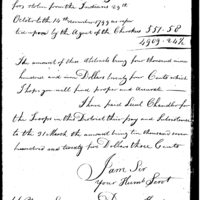 for stolen from the Indians 29th
October to 14th November 1793 as rejoin
tic-upon by the Agent of the Cherokees 551.58
4909.24½
The amount of these Abstracts being four thousand nine
hundred and nine Dollars twenty four Cents which
I hope you will find proper and accurate
I have paid Lieut Chandler for
the Troops in this District their pay and Subsistence
to the 31 March the amount being ten thousand seven
hundred and twenty two Dollars three Cents
I am Sir
Your Humb Servt